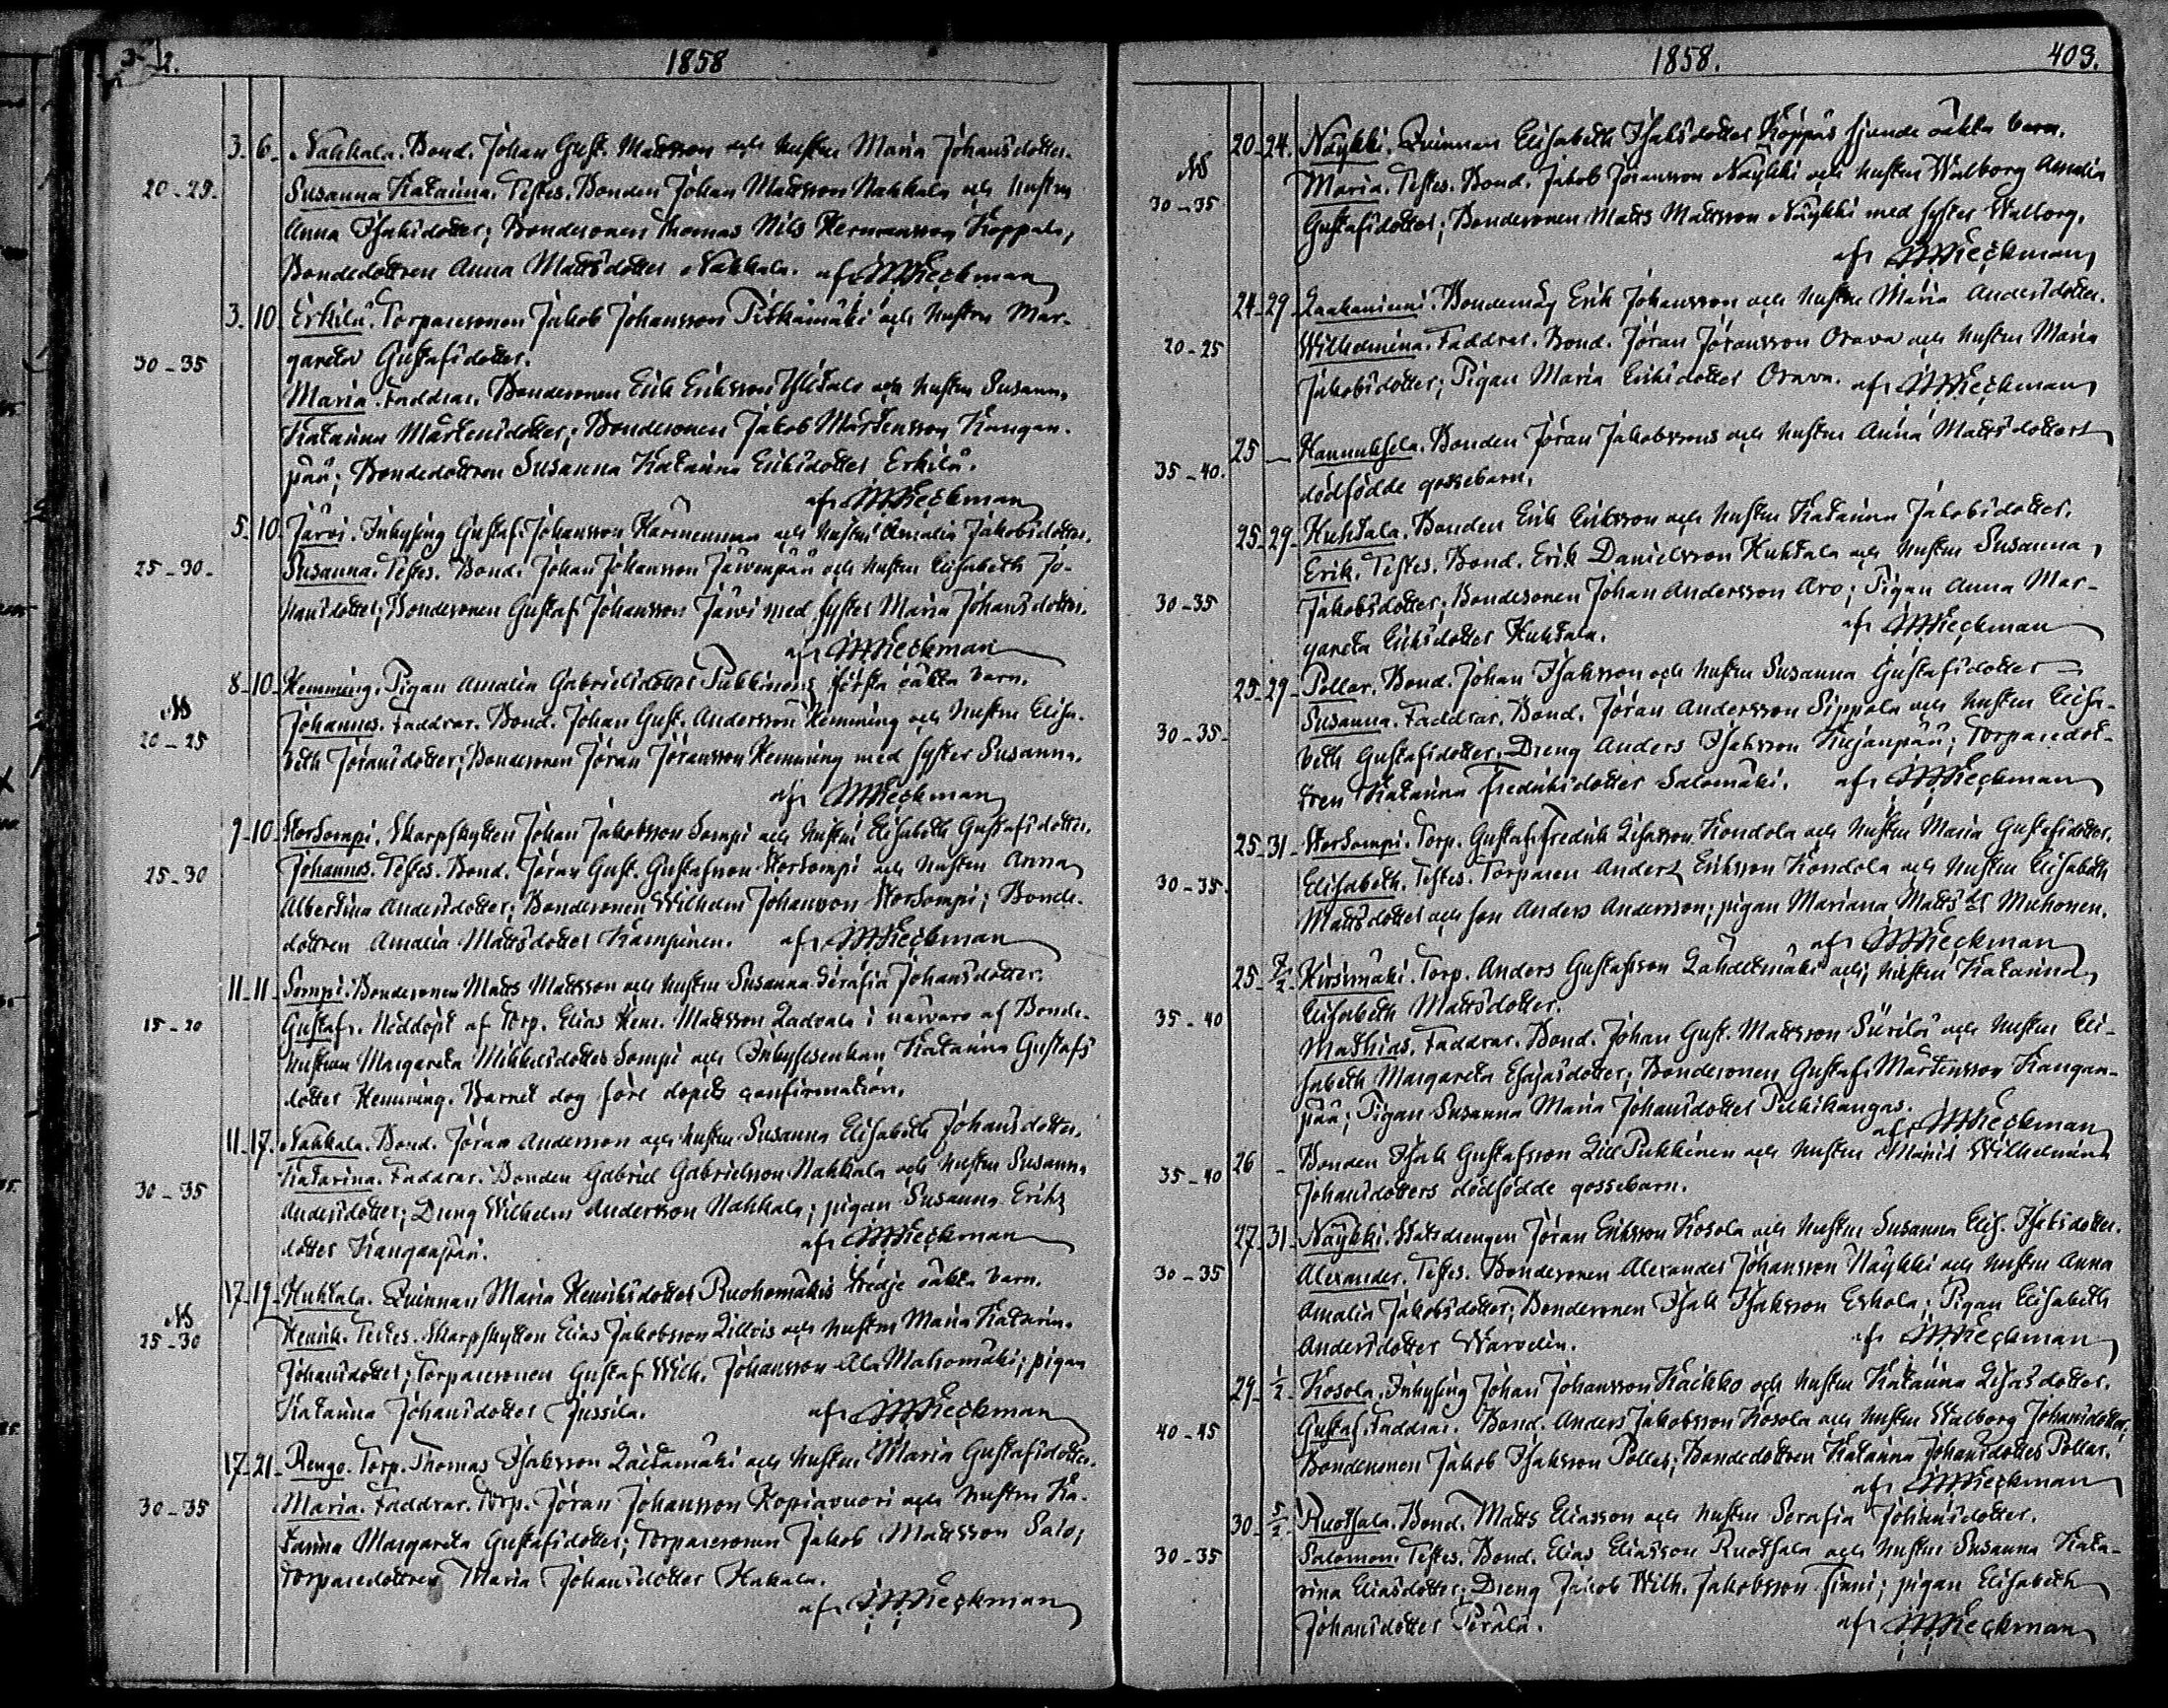 1858
3. 6. Nakkala. Bond. Johan Gust. Mattsson och hustru Maria Johansdotter.
20-25. Susanna Katarina. Testes. Bonden Johan Mattsson Nakkala och hustru
Anna Isaksdotter; Bondesonen Thomas Nils Hermansson Koppala,
Bondedottren Anna Mattsdotter Nakkala. af
3. 10. Erkilä. Torparesonen Jakob Johansson Pitkämäki och hustru Mar-
30-35 gareta Gustafsdotter.
Maria. Faddrar. Bondesonen Erik Eriksson Ylitalo och hustru Susanna
Katarina Mårtensdotter; Bondesonen Jakob Mårtensson Kangan-
pää; Bondedottren Susanna Katarina Eriksdotter Erkilä.
af
5. 10. Järvi. Inhysing Gustaf Johansson Harmenmaa och hustru Amalia Jakobsdotter.
25-30. Susanna. Testes. Bond. Johan Johansson Järvenpää och hustru Elisabeth Jo-
hansdotter; Bondesonen Gustaf Johansson Järvi med syster Maria Johansdotter.
af
8. 10. Hemming. Pigan Amalia Gabrielsdotter Pukkinens första oäkta barn.
20-25 Johannes. Faddrar. Bond. Johan Gust. Andersson Hemming och hustru Elisa-
beth Jöransdotter; Bondesonen Jöran Jöransson Hemming med syster Susanna.
af
9. 10. Storsompi. Skarpskytten Johan Jakobsson Sompi och hustru Elisabeth Gustafsdotter.
25-30 Johannes. Testes. Bond. Jöran Gust. Gustafsson Storsompi och hustru Anna
Albertina Andersdotter; Bondesonen Wilhelm Johansson Storsompi; Bonde-
dottren Amalia Mattsdotter Kampinen. af
11. 11. Sompi. Bondesonen Matts Mattsson och hustru Susanna Serafia Johansdotter.
15-20 Gustaf. Nöddöpt af Torp. Elias Henr. Mattsson Ladvala i närvaro af Bonde-
hustrun Margareta Mikkelsdotter Sompi och Inhyseenkan Katarina Gustafs
dotter Hemming. Barnet dog före dopets confirmation.
11. 17. Nakkala. Bond. Jöran Andersson och hustru Susanna Elisabeth Johansdotter.
30-35 Katarina. Faddrar. Bonden Gabriel Gabrielsson Nakkala och hustru Susanna
Andersdotter; Dreng Wilhelm Andersson Nakkala; pigan Susanna Eriks
dotter Kanganpää. af
17. 19. Huhtala. Quinnan Maria Henriksdotter Ruohomäkis tredje oäkta barn.
25-30 Henrik. Testes. Skarpskytten Elias Jakobsson Lillvis och hustru Maria Katarina
Johansdotter; Torparesonen Gustaf Wilh. Johansson Ala Mahomäki; pigan
Katarina Johansdotter Jussila. af
17. 21. Rengo. Torp. Thomas Isaksson Laitamäki och hustru Maria Gustafsdotter.
30-35 Maria. Faddrar. Torp. Jöran Johansson Kopiavuori och hustru Ka-
tarina Margareta Gustafsdotter; Torparesonen Jakob Mattsson Salo;
Torparedottren Maria Johansdotter Hakala.
af
1858. 403.
20. 24. Näykki. Quinnan Elisabeth Isaksdotter Köppäs sjunde oäkta barn.
30-35 Maria. Testes. Bond. Jakob Jöransson Näykki och hustru Walborg Amalia
Gustafsdotter; Bondesonen Matts Mattsson Näykki med syster Walborg.
af
24. 29. Laakaniemi. Bondemåg Erik Johansson och hustru Maria Andersdotter.
20-25 Wilhelmina. Faddrar. Bond. Jöran Jöransson Orava och hustru Maria
Jakobsdotter; Pigan Maria Eriksdotter Orava. af
25 — Hannuksela. Bonden Jöran Jakobssons och hustru Anna Mattsdotters
35-40. dödfödde gossebarn.
25. 29. Huhtala. Bonden Erik Eriksson och hustru Katarina Jakobsdotter.
Erik. Testes. Bond. Erik Danielsson Huhtala och hustru Susanna
30-35 Jakobsdotter; Bondesonen Johan Andersson Aro; Pigan Anna Mar-
gareta Eriksdotter Huhtala. af
25. 29. Pollar. Bond. Johan Isaksson och hustru Susanna Gustafsdotter
30-35. Susanna. Faddrar. Bond. Jöran Andersson Sippola och hustru Elisa-
beth Gustafsdotter; Dreng Anders Isaksson Kujanpää; Torparedot-
tren Katarina Fredriksdotter Salomäki. af
25. 31. Storsompi. Torp. Gustaf Fredrik Esiasson Kondola och hustru Maria Gustafsdotter.
30-35. Elisabeth. Testes. Torparen Anders Eriksson Kondola och hustru Elisabeth
Mattsdotter och son Anders Andersson; pigan Mariana Matts dr Muhonen.
af
25. 7/2. Hirsimäki. Torp. Anders Gustafsson Lähdetmäki och hustru Katarina
35-40 Elisabeth Mattsdotter.
Mathias. Faddrar. Bond. Johan Gust. Mattsson Siirilä och hustru Eli-
sabeth Margareta Esajasdotter; Bondesonen Gustaf Mårtensson Kangan-
pää; Pigan Susanna Maria Johansdotter Pitkikangas.
af
26 - Bonden Isak Gustafsson Lill Pukkinen och hustru Maria Wilhelmina
35-40 Johansdotters dödfödde gossebarn.
27. 31. Näykki. Statsdrengen Jöran Eriksson Kosola och hustru Susanna Elis. Isaksdotter.
30-35 Alexander. Testes. Bondesonen Alexander Johansson Näykki och hustru Anna
Amalia Jakobsdotter; Bondesonen Isak Isaksson Eskola; Pigan Elisabeth
Andersdotter Warvelin. af
29. 1/2. Kosola. Inhysing Johan Johansson Kaikko och hustru Katarina Esiasdotter.
40-45 Gustaf. Faddrar. Bond. Anders Jakobsson Kosola och hustru Walborg Johansdotter,
Bondesonen Jakob Isaksson Pollar; Bondedottren Katarina Johansdotter Pollar.
af
30. 5/2. Ruotsala. Bond. Matts Eliasson och hustru Serafia Johansdotter.
30-35 Salomon. Testes. Bond. Elias Eliasson Ruotsala och hustru Susanna Kata-
rina Eliasdotter; Dreng Jakob Wilh. Jakobsson Finni; pigan Elisabeth
Johansdotter Perälä. af